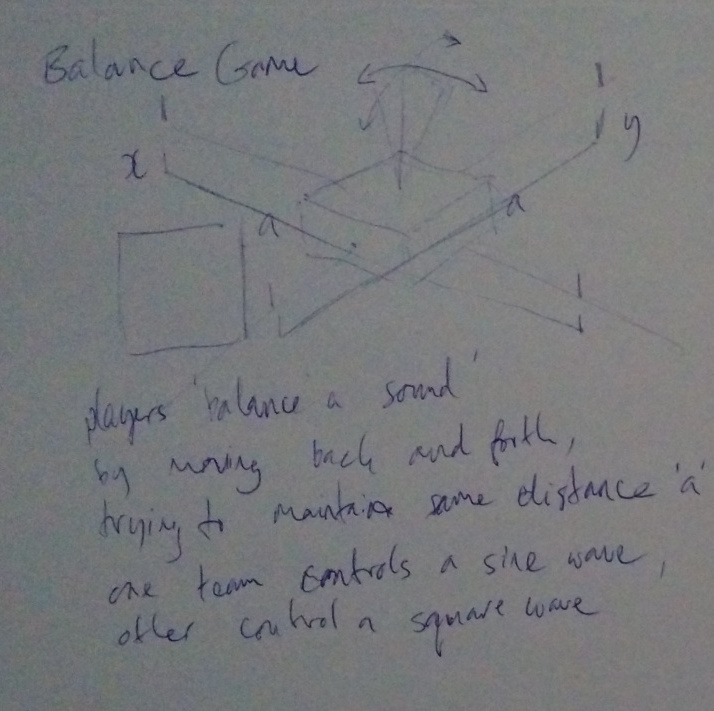 Balance Game
x
y
a
a
players 'balance a sound'
by moving back and forth,
trying to maintain same distance 'a'
one team controls a sine wave,
other control a square wave